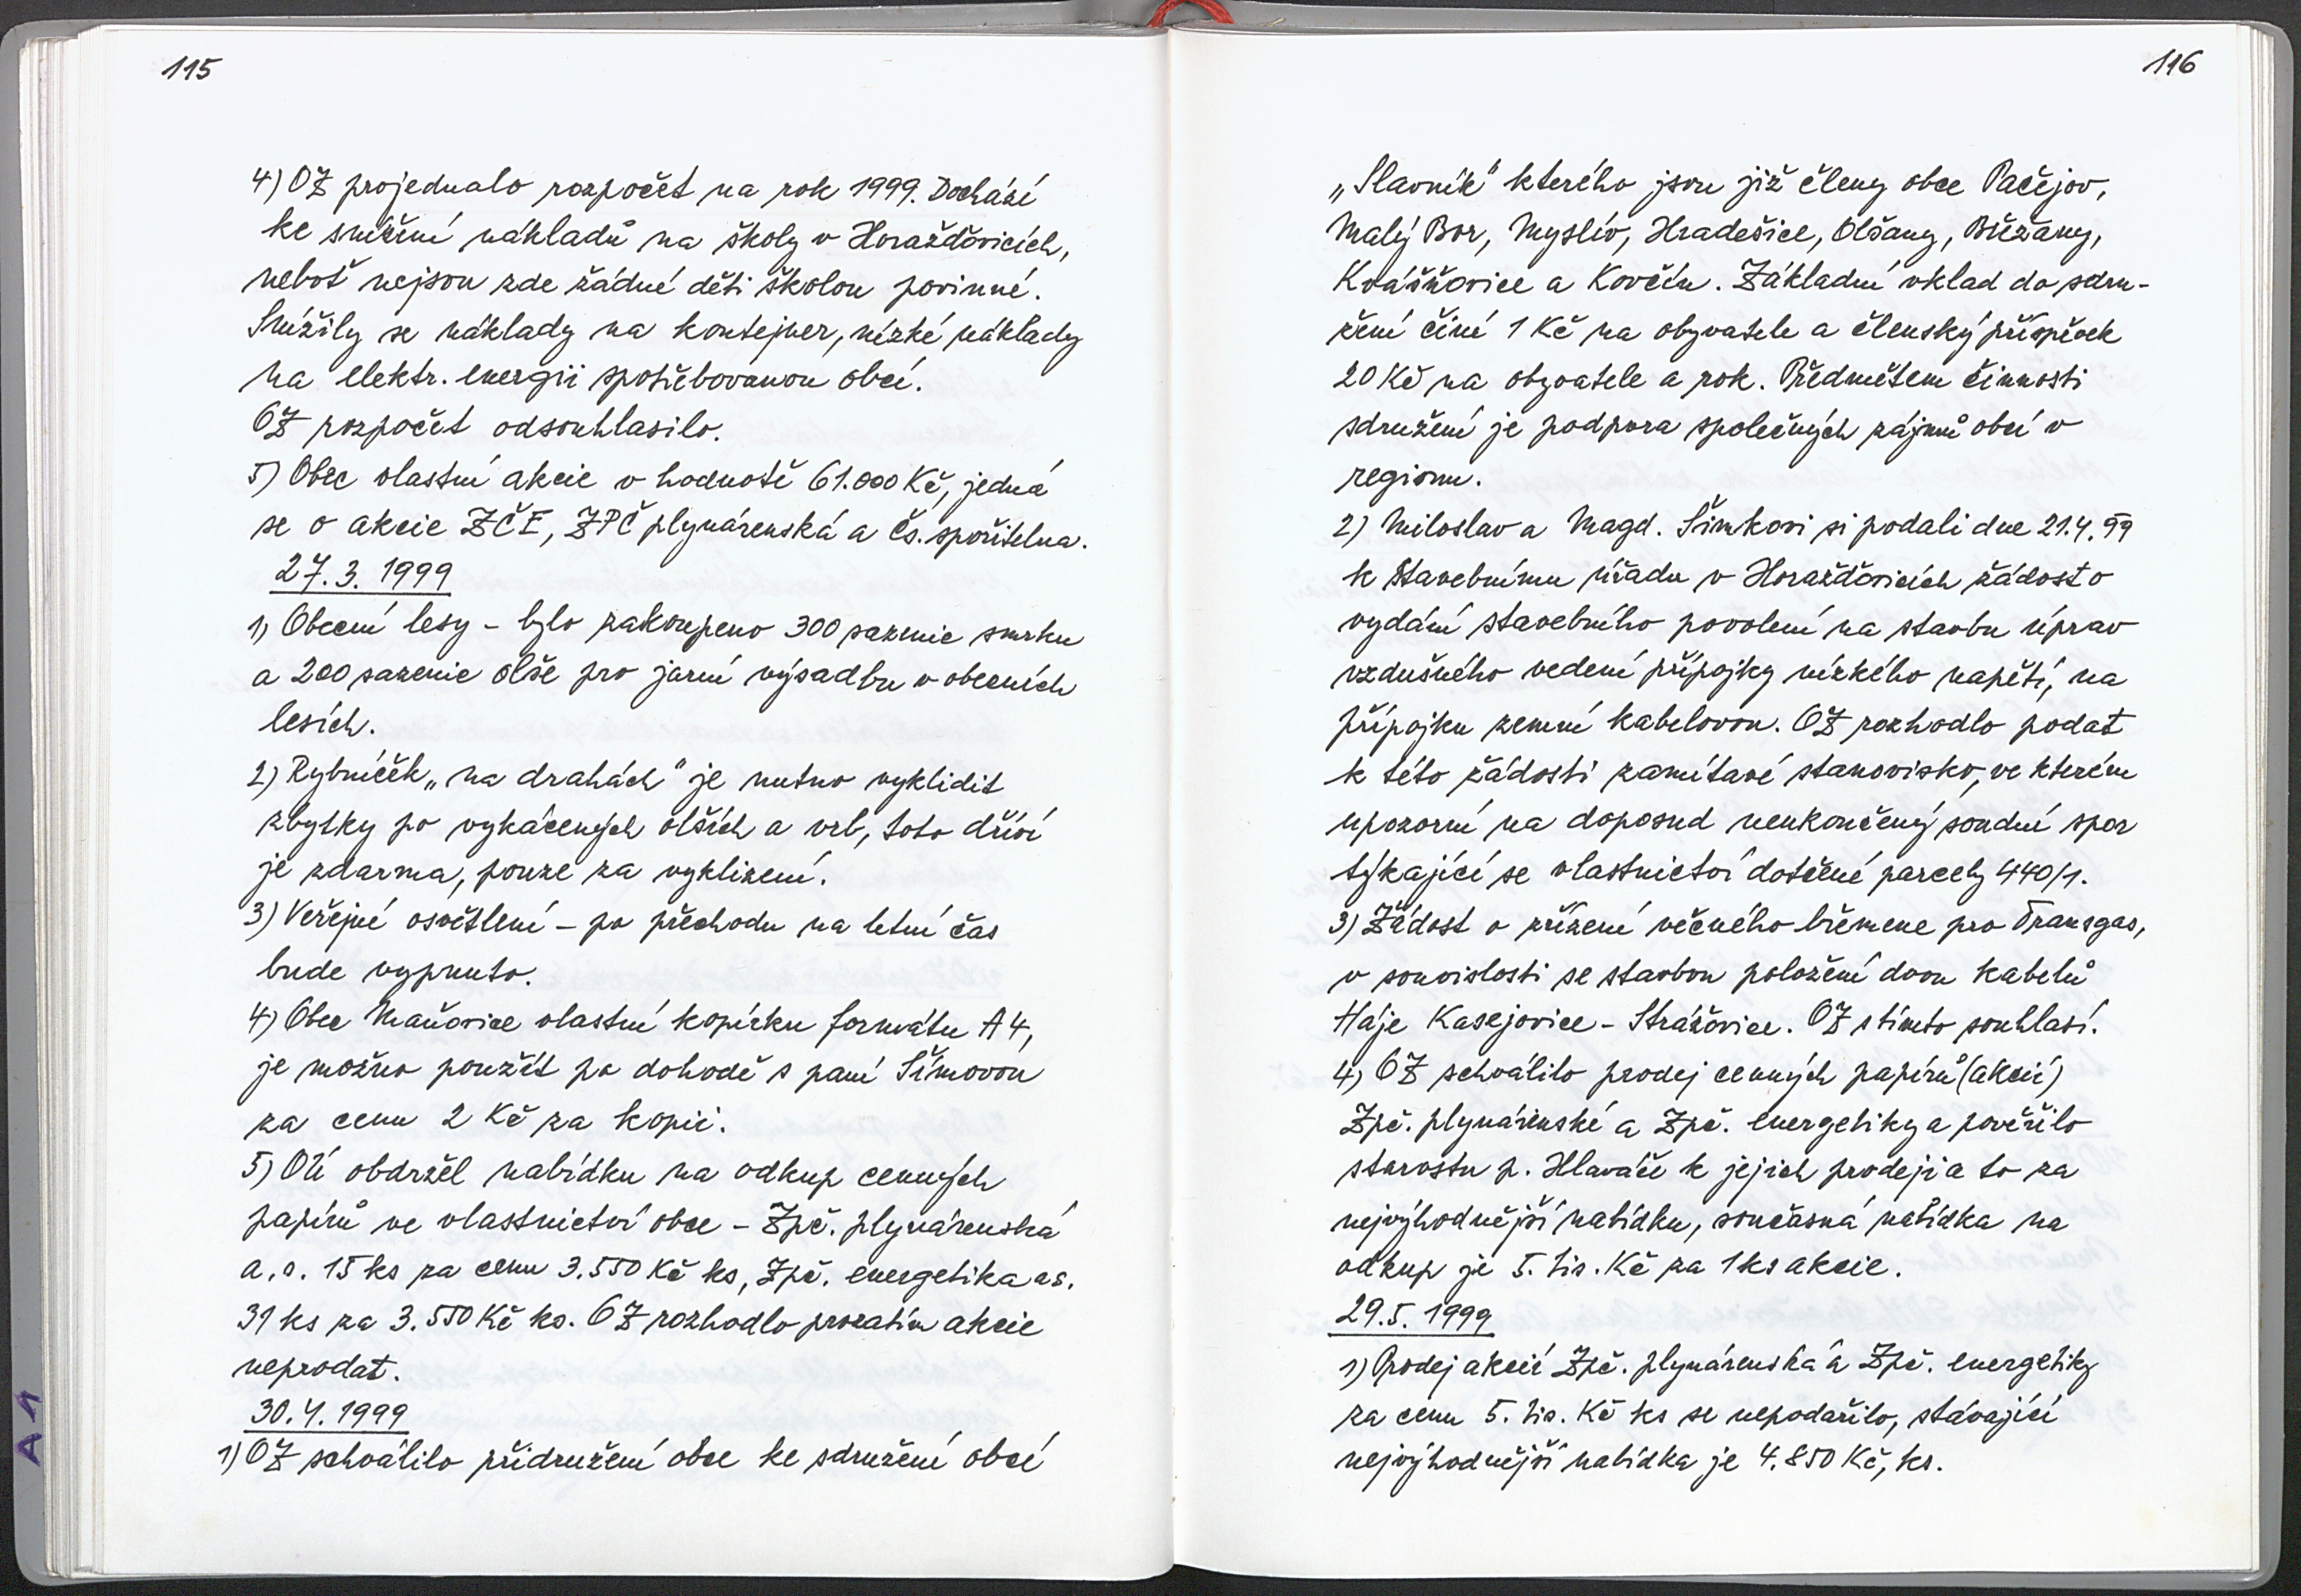 115
4) OZ projednalo rozpočet na rok 1999. Dochází
ke snížení nákladů na školy v Horažďovicích,
neboť nejsou zde žádné děti školou povinné.
Snížily se náklady na kontejner, nízké náklady
na elektr. energii spotřebovanou obcí.
OZ rozpočet odsouhlasilo.
5) Obec vlastní akcie v hodnotě 61.000 Kč, jedná
se o akcie ZČE, ZPČ plynárenská a Čs. spořitelna.
27.3. 1999
1) Obecní lesy - bylo zakoupeno 300 sazenic smrku
a 200 sazenic olše pro jarní výsadbu v obecních
lesích.
2) Rybníček „na drahách" je nutno vyklidit
zbytky po vykácených olších a vrb, toto dříví
je zdarma, pouze za vyklizení.
3) Veřejné osvětlení - po přechodu na letní čas
bude vypnuto.
4) Obec Maňovice vlastní kopírku formátu A4,
je možno použít po dohodě s paní Šímovou
za cenu 2 Kč za kopii.
5) OÚ obdržel nabídku na odkup cenných
papírů ve vlastnictví obce - Zpč. plynárenská
a.s. 15 ks za cenu 3.550 Kč ks, Zpč. energetika as.
31 ks za 3.550 Kč ks. OZ rozhodlo prozatím akcie
neprodat.
30.4.1999
1) OZ schválilo přidružení obce ke sdružení obcí
A1
116
„Slavník" kterého jsou již členy obce Pačejov,
Malý Bor, Myslív, Hradešice, Olšany, Břežany,
Kvášňovice a Kovčín. Základní vklad do sdru-
žení činí 1 Kč na obyvatele a členský příspěvek
20 Kč na obyvatele a rok. Předmětem činnosti
sdružení je podpora společných zájmů obcí v
regionu.
2) Miloslav a Magd. Šimkovi si podali dne 21.4.99
k Stavebnímu úřadu v Horažďovicích žádost o
vydání stavebního povolení na stavbu úprav
vzdušného vedení přípojky nízkého napětí, na
přípojku zemní kabelovou. OZ rozhodlo podat
k této žádosti zamítavé stanovisko, ve kterém
upozorní na doposud neukončený soudní spor
týkající se vlastnictví dotčené parcely 440/1.
3) Žádost o zřízení věčného břemene pro Transgas,
v souvislosti se stavbou položení dvou kabelů
Háje Kasejovice - Strážovice. OZ s tímto souhlasí.
4) OZ schválilo prodej cenných papírů (akcií)
Zpč. plynárenské a Zpč. energetiky a pověřilo
starostu p. Hlaváče k jejich prodeji a to za
nejvýhodnější nabídku, současná nabídka na
odkup je 5. tis. Kč za 1 ks akcie.
29.5. 1999
1) Prodej akcií Zpč. plynárenská a Zpč. energetiky
za cenu 5. tis. Kč ks se nepodařilo, stávající
nejvýhodnější nabídka je 4.850 Kč, ks.